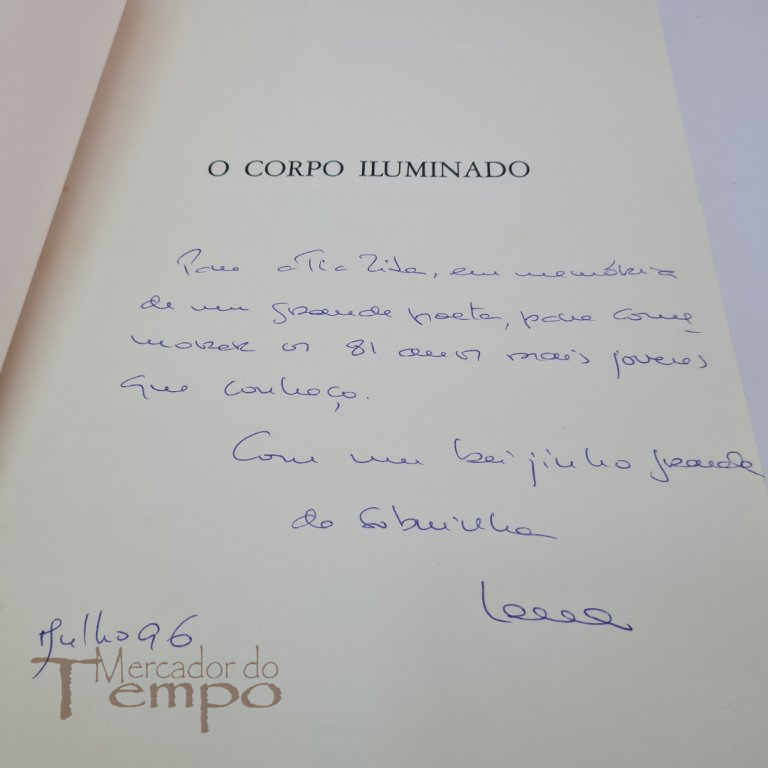 O CORPO ILUMINADO
Para a Tia Zita, em memória
de um grande poeta, para come
morar os 81 anos mais jovens
que conheço.
Com um beijinho grande
da sobrinha
Julho 96
Mercador do
Tempo